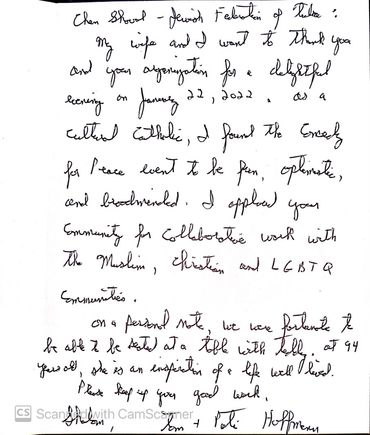 Chen Shoval - Jewish Federation of Tulsa:
My wife and I want to thank you
and your organization for a delightful
evening on January 22, 2022. As a
cultural Catholic, I found the Comedy
for Peace event to be fun, optimistic,
and broadminded. I applaud your
Community for collaborative work with
the Muslim, Christian and LGBTQ
Communities.
On a personal note, we were fortunate to
be able to be seated at a table with . At 94
years old, she is an inspiration of a life well lived.
Please keep up your good work.
Shalom, Tom + Pati Hoffmann
CS Scanned with CamScanner